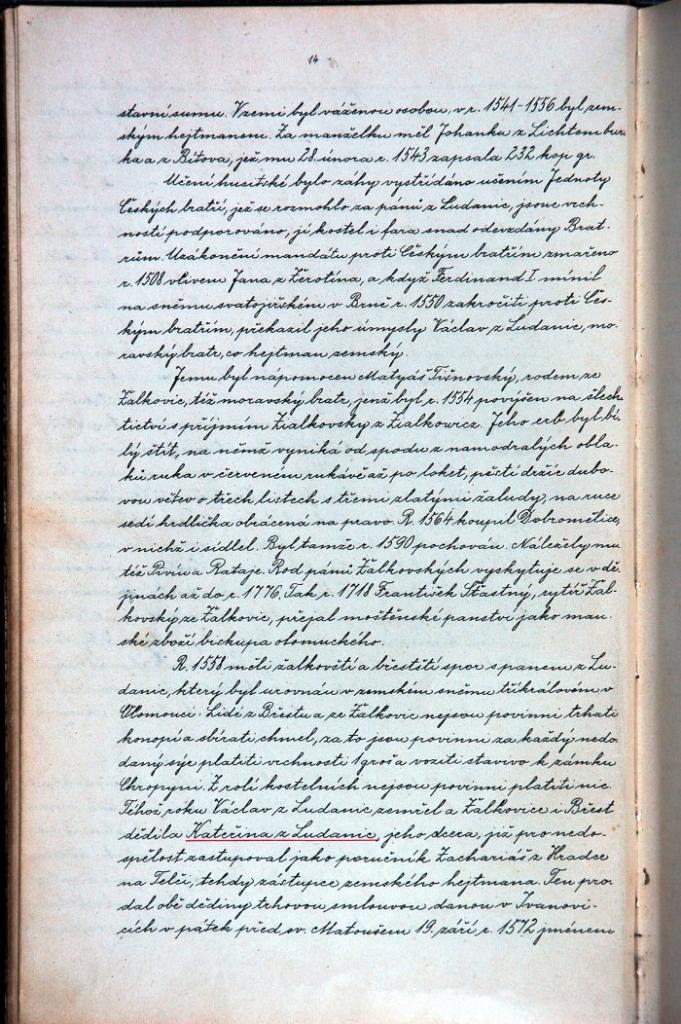 14
stavní sumu. V zemi byl váženou osobou, v r. 1541-1556 byl zem-
ským hejtmanem. Za manželku měl Johanku z Lichtembur
ka a z Bítova, jež mu 28. února r. 1543 zapsala 232 kop gr.
Učení husitské bylo záhy vystřídáno učením Jednoty
Českých bratří, jež se rozmohlo za pánů z Ludanic, jsouc vrch-
ností podporováno, jí kostel i fara snad odevzdány Brat-
rům. Uzákonění mandátu proti Českým bratřím zmařeno
r. 1508 vlivem Jana z Žerotína, a když Ferdinand I. mínil
na sněmu svatojiřském v Brně r. 1550 zakročiti proti Čes-
kým bratřím, překazil jeho úmysly Václav z Ludanic, mo-
ravský bratr, co hejtman zemský.
Jemu byl nápomocen Matyáš Tišnovský, rodem ze
Žalkovic, též moravský bratr, jenž byl r. 1554 povýšen na šlech
tictví s příjmím Žialkovský z Žialkowicz. Jeho erb byl bí-
lý štít, na němž vyniká od spodu z namodralých obla-
ků ruka v červeném rukávě až po loket, pěstí držíc dubo-
vou větev o třech listech s třemi zlatými žaludy, na ruce
sedí hrdlička obrácená na pravo. R. 1564 koupil Dobromělice,
v nichž i sídlel. Byl tamže r. 1590 pochován. Náležely mu
též Pivín a Rataje. Rod pánů Žalkovských vyskytuje se v dě-
jinách až do r. 1776. Tak r. 1718 František Šťastný, rytíř Žal-
kovský ze Žalkovic, přejal moštěnské panství jako man-
ské zboží biskupa olomuckého.
R. 1558 měli žalkovští a břestští spor s panem z Lu-
danic, který byl urovnán v zemském sněmu tříkrálovém v
Olomouci: Lidé z Břestu a ze Žalkovic nejsou povinni trhati
konopí a sbírati chmel, za to jsou povinni za každý nedo
daný sýr platiti vrchnosti 1 groš a voziti stavivo k zámku
Chropyni. Z rolí kostelních nejsou povinni platiti nic.
Téhož roku Václav z Ludanic zemřel a Žalkovice i Břest
dědila Kateřina z Ludanic, jeho dcera, již pro nedo-
spělost zastupoval jako poručník Zachariáš z Hradce
na Telči, tehdy zástupce zemského hejtmana. Ten pro-
dal obě dědiny trhovou smlouvou danou v Ivanovi-
cích v pátek před sv. Matoušem 19. září r. 1572 jménem